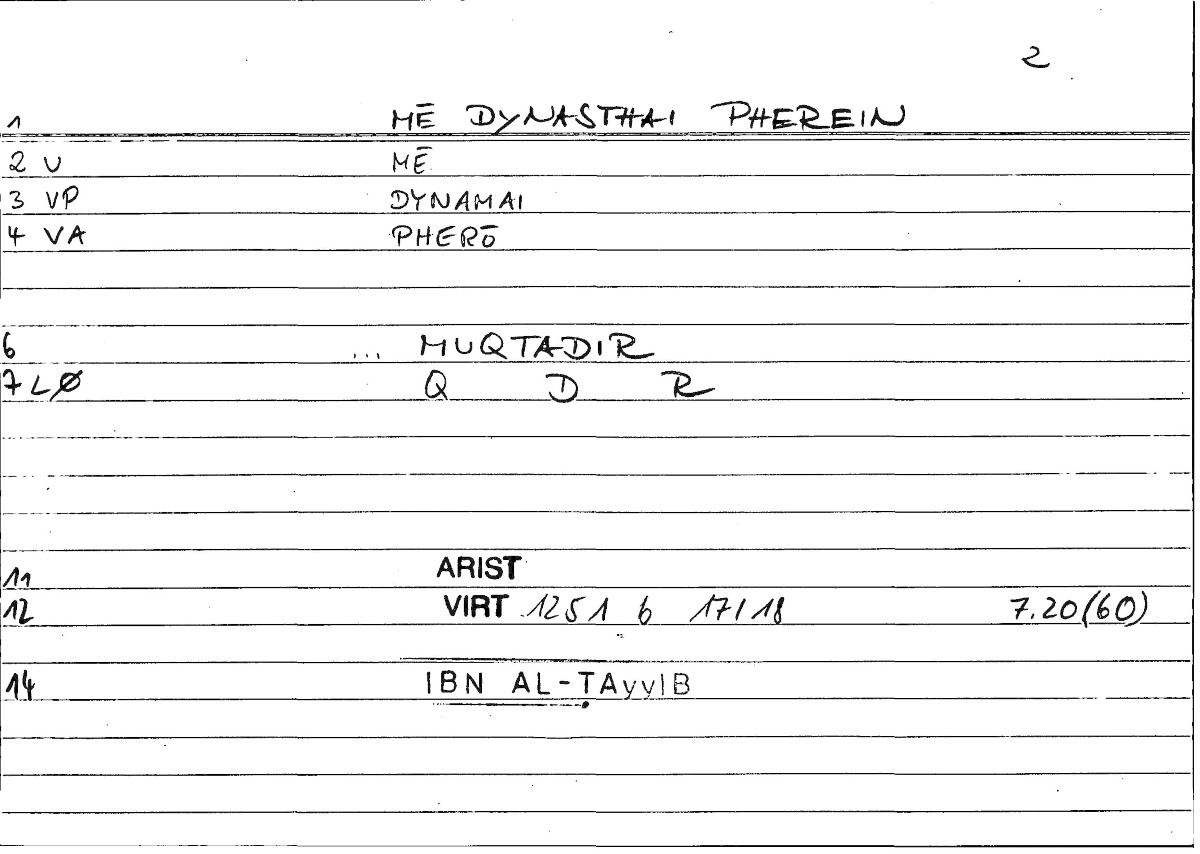 2
1 MĒ DYNASTHAI PHEREIN
2 U MĒ
3 VP DYNAMAI
4 VA PHERŌ
6 ... MUQTADIR
7 LØ Q D R
11 ARIST
12 VIRT 1251 b 17/18 7.20(60)
14 IBN AL-ṬAyyIB